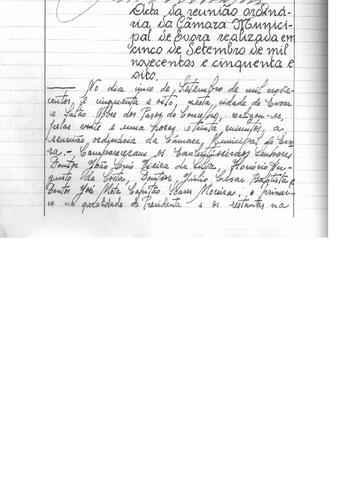 Acta da reunião ordiná-
ria da Câmara Munici-
pal de Evora realizada em
cinco de Setembro de mil
novecentos e cinquenta e
oito.
No dia cinco de Setembro de mil nove-
centos e cinquenta e oito, nesta cidade de Evora
e Salão Nobre dos Paços do Concelho, realizou-se,
pelas vinte e uma horas e trinta minutos, a
reunião ordinária da Câmara Municipal de Evo-
ra.- Compareceram os Excelentíssimos Senhores
Doutor João Luis Vieira da Silva, Honório Au-
gusto da Costa, Doutor Júlio Cesar Baptista e
Doutor José Mota Capitão Soares Moreira, o primei-
ro na qualidade de Presidente e os restantes na